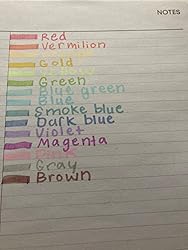 NOTES
Red
Vermilion
Gold
Yellow
Green
Blue green
Blue
Smoke blue
Dark blue
Violet
Magenta
Pink
Gray
Brown